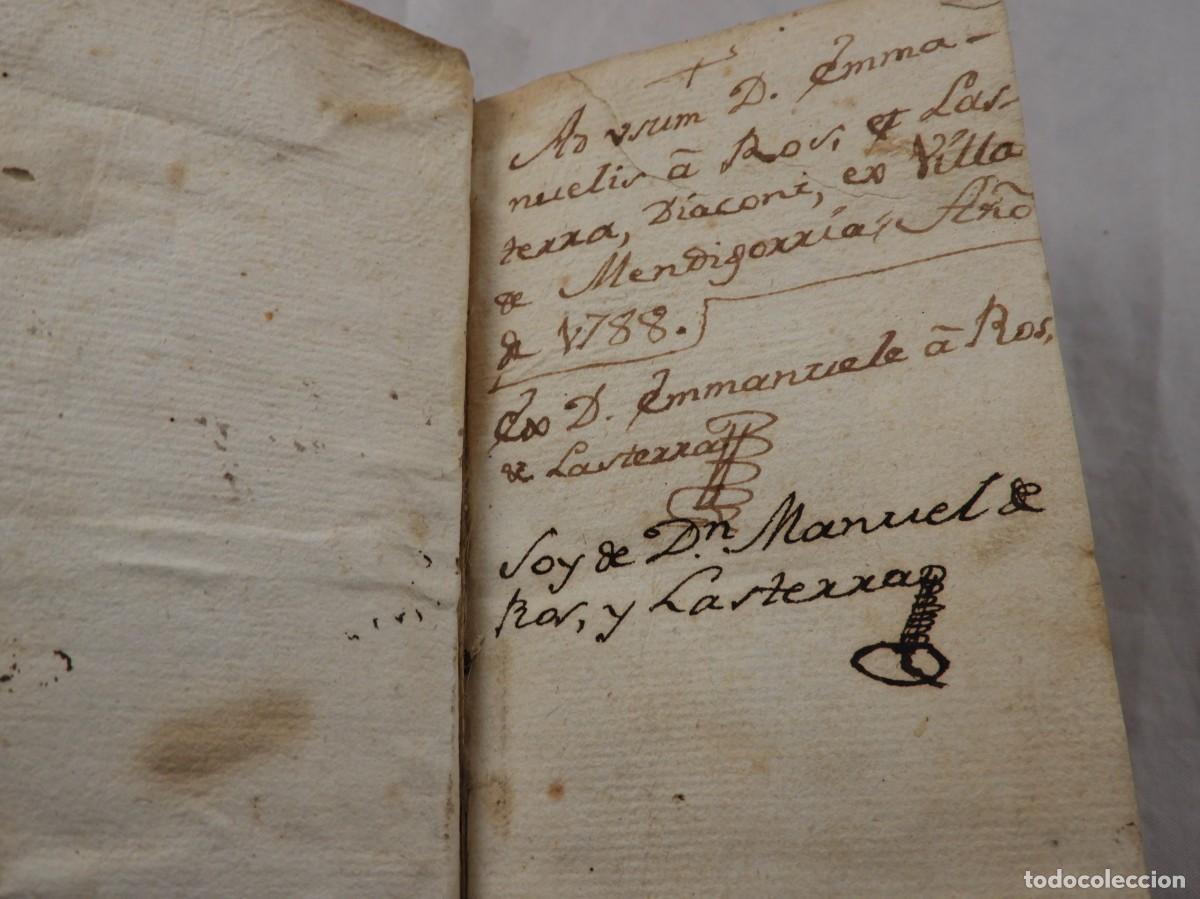 +
Ad vsum D. Emma-
nuelis â Ros, et Las-
terra, Diaconi, ex Villa
de Mendigorria, Año
de 1788.
Ex D. Emmanuele â Ros,
et Lasterra
Soy de Dn. Manuel de
Ros, y Lasterra
todocoleccion